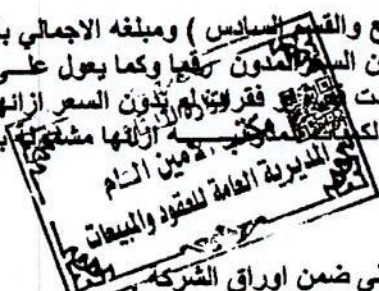 ع والقسم السادس ) ومبلغه الاجمالي ب
ن السعر المدون رقما وكما يعول علـى
فقرات لم تدون السعر ازائها
ازائها مشمولة
الامين العام
المديرية العامة للعقود والمبيعات
ني ضمن اوراق الشركة